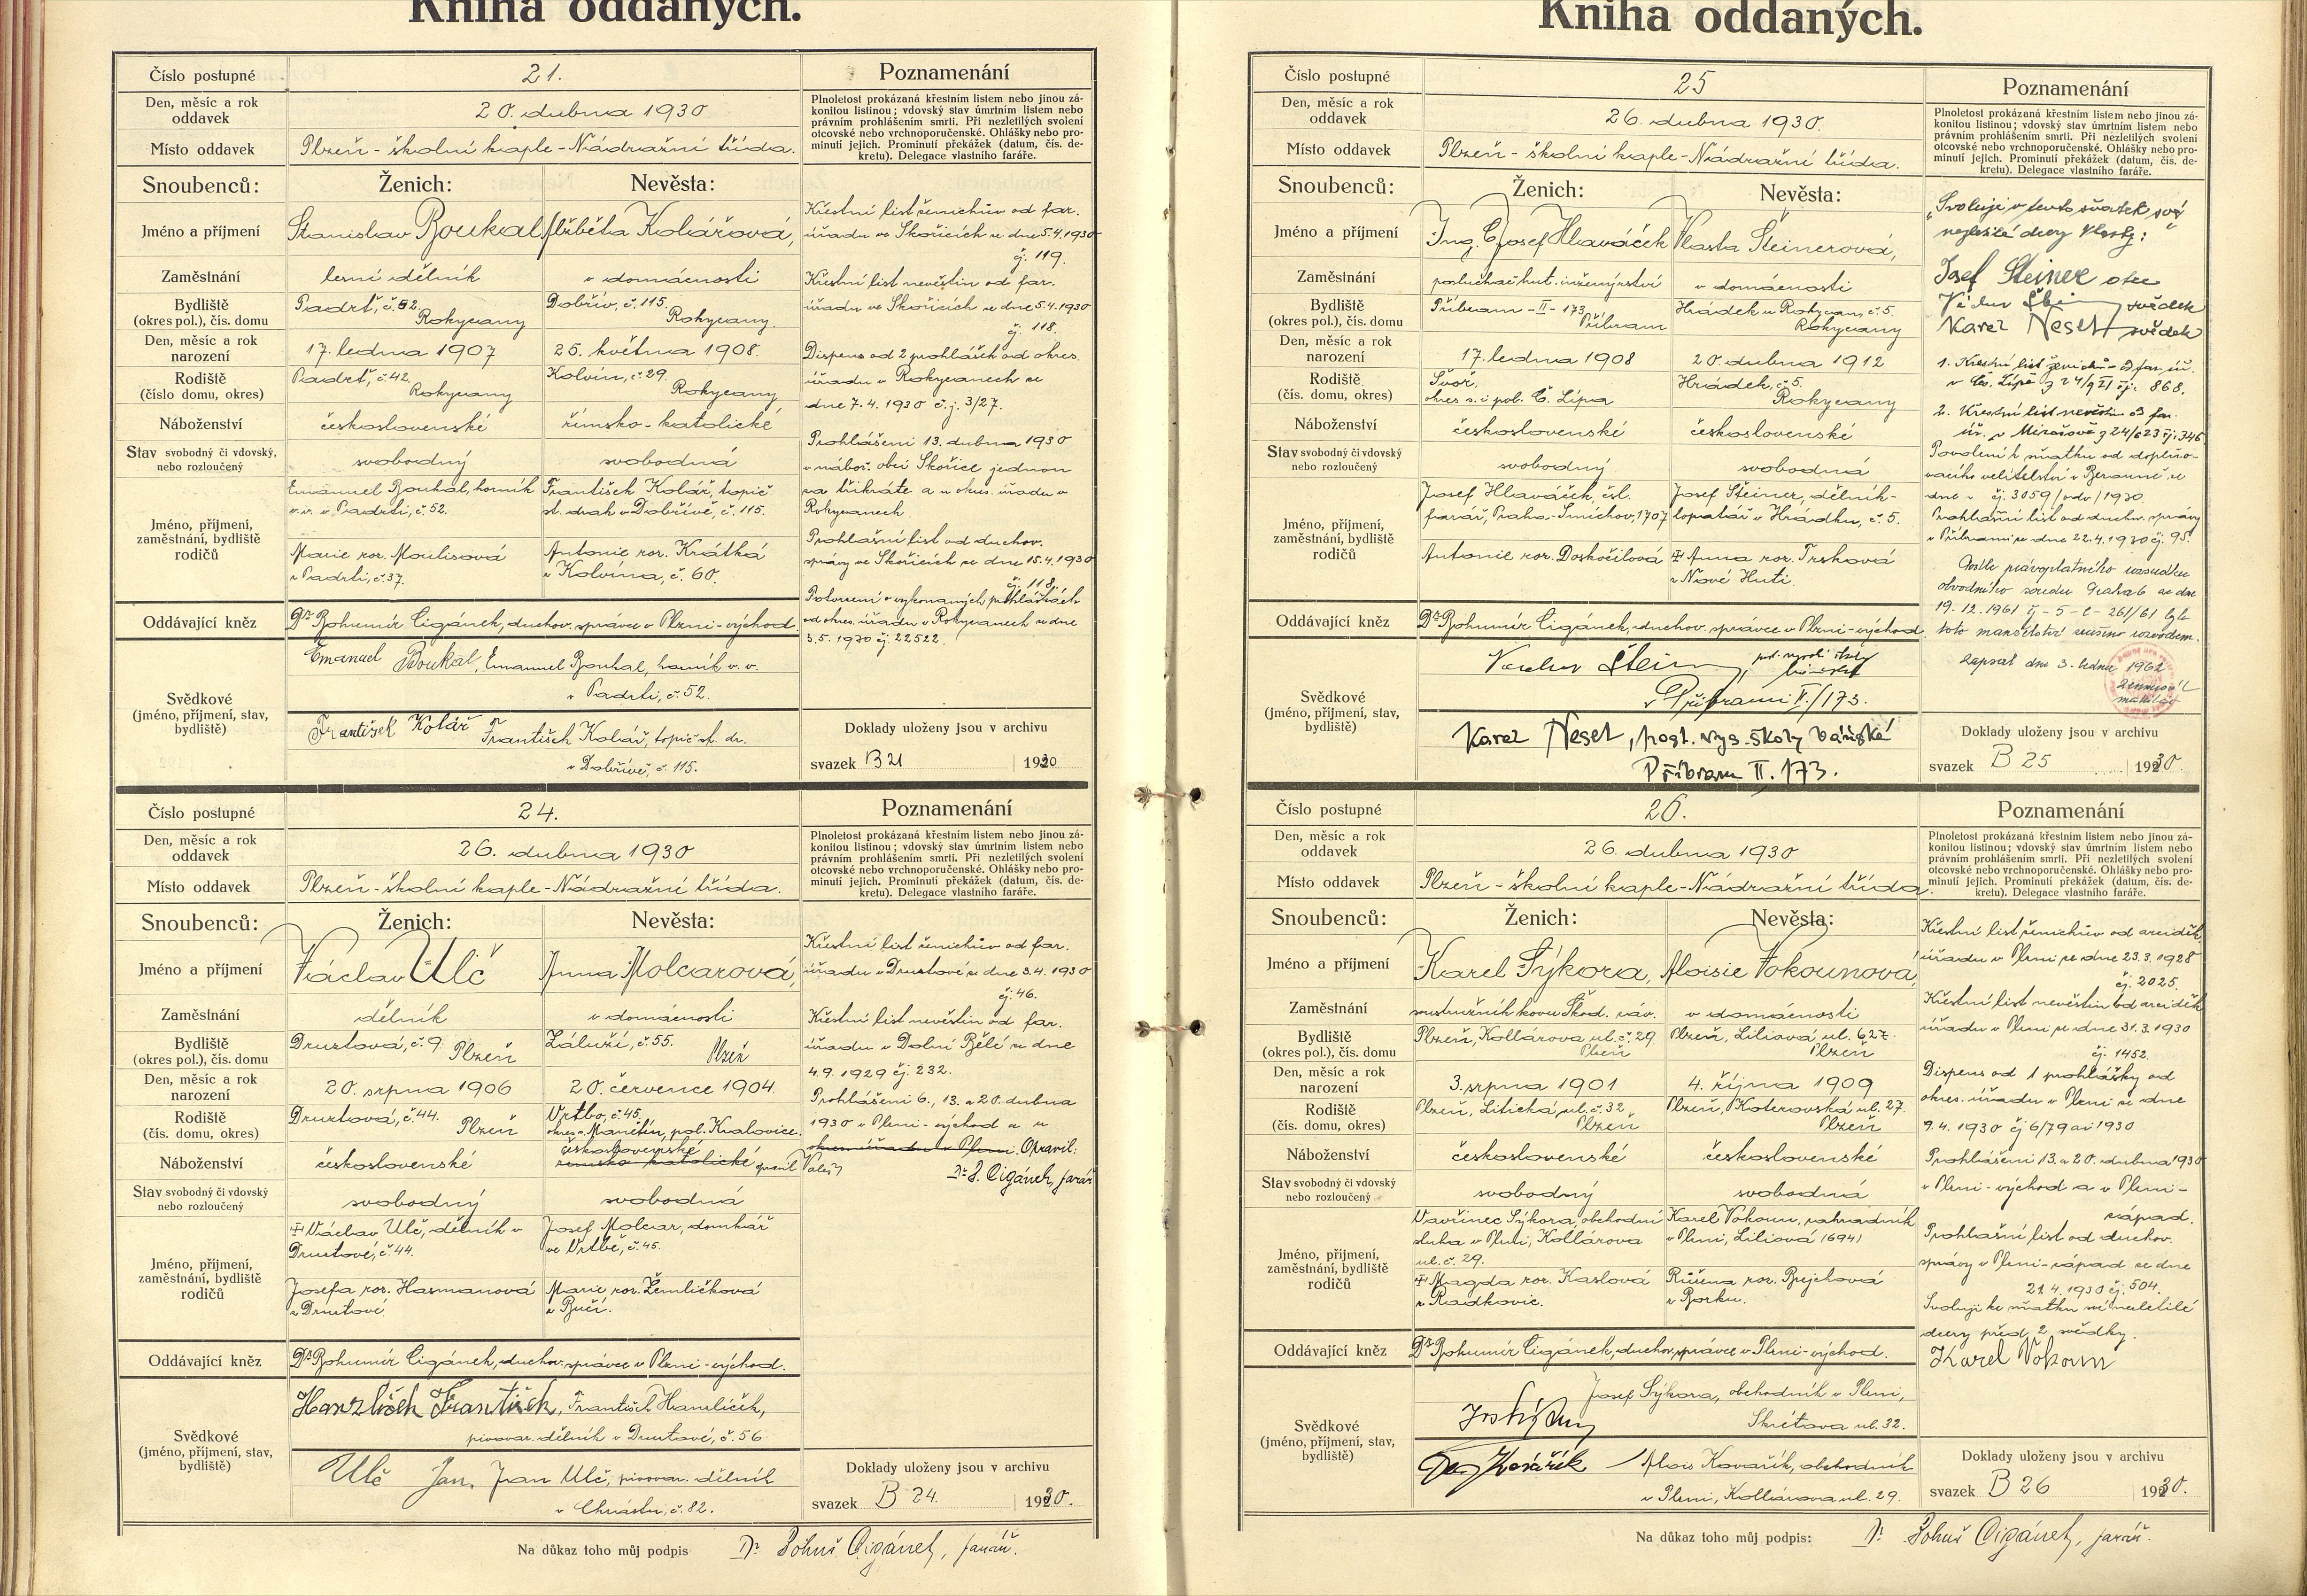 Kniha oddaných.
Číslo postupné 21. Poznamenání
Den, měsíc a rok oddavek 20. dubna 1930
Plnoletost prokázaná křestním listem nebo jinou zá-
konitou listinou; vdovský stav úmrtním listem nebo
právním prohlášením smrti. Při nezletilých svolení
otcovské nebo vrchnoporučenské. Ohlášky nebo pro-
minutí jejich. Prominutí překážek (datum, čís. de-
kretu). Delegace vlastního faráře.
Místo oddavek Plzeň - školní kaple - Nádražní třída.
Snoubenců: Ženich: Nevěsta:
Jméno a příjmení Stanislav Boukal Alžběta Kolářová,
Zaměstnání lesní dělník v domácnosti
Bydliště (okres pol.), čís. domu Padrť, č. 52. Rokycany Dobřív, č. 115. Rokycany.
Den, měsíc a rok narození 17. ledna 1907 25. května 1908.
Rodiště (číslo domu, okres) Padrť, č. 42. Rokycany Kolvín, č. 29. Rokycany
Náboženství československé římsko-katolické
Stav svobodný či vdovský, nebo rozloučený svobodný svobodná
Jméno, příjmení, zaměstnání, bydliště rodičů
Emanuel Boukal, horník František Kolář, topič
v.v. v Padrti, č. 52. st. drah v Dobřívě, č. 115.
Marie roz. Moulisová Antonie roz. Krátká
z Padrti, č. 37. z Kolvína, č. 60.
Oddávající kněz Dr. Bohumír Cigánek, duchov. správce v Plzni-východ.
Svědkové (jméno, příjmení, stav, bydliště)
Emanuel Boukal, Emanuel Boukal, horník v. v.
v Padrti, č. 52.
František Kolář František Kolář, topič st. dr.
v Dobřívě, č. 115.
Křestní list ženichův od far.
úřadu ve Skořicích ze dne 5.4.1930
čj. 119.
Křestní list nevěstin od far.
úřadu ve Skořicích ze dne 5.4.1930
čj. 118.
Dispens od 2 prohlášek od okres.
úřadu v Rokycanech ze
dne 7.4.1930 č.j. 3/27.
Prohlášení 13. dubna 1930
v nábož. obci Skořice jednou
za třikráte a u okres. úřadu v
Rokycanech.
Prohlašní list od duchov.
správy ve Skořicích ze dne 15.4.1930
čj. 118.
Potvrzení o vykonaných prohláškách
od okres. úřadu v Rokycanech ze dne
3.5.1930 čj. 22522.
Doklady uloženy jsou v archivu
svazek B 21 1930
Číslo postupné 24. Poznamenání
Den, měsíc a rok oddavek 26. dubna 1930
Plnoletost prokázaná křestním listem nebo jinou zá-
konitou listinou; vdovský stav úmrtním listem nebo
právním prohlášením smrti. Při nezletilých svolení
otcovské nebo vrchnoporučenské. Ohlášky nebo pro-
minutí jejich. Prominutí překážek (datum, čís. de-
kretu). Delegace vlastního faráře.
Místo oddavek Plzeň - školní kaple - Nádražní třída.
Snoubenců: Ženich: Nevěsta:
Jméno a příjmení Václav Ulč Anna Molcarová,
Zaměstnání dělník v domácnosti
Bydliště (okres pol.), čís. domu Druztová, č. 9. Plzeň Záluží, č. 55. Plzeň
Den, měsíc a rok narození 20. srpna 1906 20. července 1904.
Rodiště (čís. domu, okres) Druztová, č. 44. Plzeň Vrtbo, č. 45.
okres s. Manětín, pol. Kralovice.
československé
Náboženství československé římsko-katolické
Stav svobodný či vdovský nebo rozloučený svobodný svobodná
Jméno, příjmení, zaměstnání, bydliště rodičů
Václav Ulč, dělník v Josef Molcar, domkář
Druztové, č. 44. ve Vrtbě, č. 45.
Josefa roz. Hasmanová Marie roz. Žemličková
z Druztové z Bučí.
Oddávající kněz Dr. Bohumír Cigánek, duchov. správce v Plzni-východ.
Svědkové (jméno, příjmení, stav, bydliště)
Hanzlíček František, František Hanzlíček,
pivovar. dělník v Druztové, č. 56
Ulč Jan. Jan Ulč, pivovar. dělník
v Chrástu, č. 82.
Křestní list ženichův od far.
úřadu v Druztové ze dne 3.4.1930
čj. 46.
Křestní list nevěstin od far.
úřadu v Dolní Bělé ze dne
4.9.1929 čj. 232.
Prohlášení 6., 13. a 20. dubna
1930 v Plzni-východ a u
okres. úřadu v Plzni. Opravil:
Dr. B. Cigánek, farář
Doklady uloženy jsou v archivu
svazek B 24. 1930.
Na důkaz toho můj podpis Dr. Bohuš Cigánek, farář.
Kniha oddaných.
Číslo postupné 25 Poznamenání
Den, měsíc a rok oddavek 26. dubna 1930.
Plnoletost prokázaná křestním listem nebo jinou zá-
konitou listinou; vdovský stav úmrtním listem nebo
právním prohlášením smrti. Při nezletilých svolení
otcovské nebo vrchnoporučenské. Ohlášky nebo pro-
minutí jejich. Prominutí překážek (datum, čís. de-
kretu). Delegace vlastního faráře.
Místo oddavek Plzeň - školní kaple - Nádražní třída.
Snoubenců: Ženich: Nevěsta:
Jméno a příjmení Ing. C. Josef Hlaváček Vlasta Šteinerová,
Zaměstnání posluchač hut. inženýrství v domácnosti
Bydliště (okres pol.), čís. domu Příbram - II - 173 Příbram Hrádek u Rokycan, č. 5. Rokycany
Den, měsíc a rok narození 17. ledna 1908 20 dubna 1912
Rodiště (čís. domu, okres) Svor. Hrádek, č. 5.
okres s. i pol. Č. Lípa Rokycany
Náboženství československé československé
Stav svobodný či vdovský nebo rozloučený svobodný svobodná
Jméno, příjmení, zaměstnání, bydliště rodičů
Josef Hlaváček, čsl. Josef Šteiner, dělník-
farář, Praha-Smíchov, 1707 lopatář v Hrádku, č. 5.
Antonie roz. Doskočilová Anna roz. Trsková
z Nové Huti.
Oddávající kněz Dr. Bohumír Cigánek, duchov. správce v Plzni-východ.
Svědkové (jméno, příjmení, stav, bydliště)
v Příbrami II/173.
Karel Neset, posl. vys. školy báňské
Příbram II. 173.
"Svoluji v tento sňatek své
nezletilé dcery Vlasty:"
Josef Šteiner otec
svědek
Karel Neset svědek
1. Křestní list ženichův od far. úř.
v Čes. Lípě čj. 868.
2. Křestní list nevěstin od far.
úř. v Mirošově
Povolení k sňatku od doplňo-
vacího velitelství v Berouně ze
dne čj. 3059/odv/1930.
Prohlašní list od duchov. správy
v Příbrami ze dne 22.4.1930 čj. 95.
Podle právoplatného rozsudku
obvodního soudu Praha 6 ze dne
19.12.1961 čj - 5 - C - 261/61 bylo
toto manželství zrušeno rozvodem.
Zapsal dne 3. ledna 1962
Doklady uloženy jsou v archivu
svazek B 25 1930.
Číslo postupné 26. Poznamenání
Den, měsíc a rok oddavek 26. dubna 1930
Plnoletost prokázaná křestním listem nebo jinou zá-
konitou listinou; vdovský stav úmrtním listem nebo
právním prohlášením smrti. Při nezletilých svolení
otcovské nebo vrchnoporučenské. Ohlášky nebo pro-
minutí jejich. Prominutí překážek (datum, čís. de-
kretu). Delegace vlastního faráře.
Místo oddavek Plzeň - školní kaple - Nádražní třída.
Snoubenců: Ženich: Nevěsta:
Jméno a příjmení Karel Sýkora, Aloisie Vokounová,
Zaměstnání soustružník kovu Škod. záv. v domácnosti
Bydliště (okres pol.), čís. domu Plzeň, Kollárova ul. č. 29. Plzeň Plzeň, Liliová ul. 627. Plzeň
Den, měsíc a rok narození 3. srpna 1901 4. října 1909
Rodiště (čís. domu, okres) Plzeň, Litická ul. č. 32. Plzeň Plzeň, Koterovská ul. 27. Plzeň
Náboženství československé československé
Stav svobodný či vdovský nebo rozloučený svobodný svobodná
Jméno, příjmení, zaměstnání, bydliště rodičů
Vavřinec Sýkora, obchodní Karel Vokoun, zahradník
sluha v Plzni, Kollárova v Plzni, Liliová 1694)
ul. č. 29.
Magda roz. Kaslová Růžena roz. Brejchová
z Radkovic. z Borku.
Oddávající kněz Dr. Bohumír Cigánek, duchov. správce v Plzni-východ.
Svědkové (jméno, příjmení, stav, bydliště)
Josef Sýkora, obchodník v Plzni,
Skrétova ul. 32.
Kovařík Alois Kovařík, obchodník
v Plzni, Kollárova ul. 29.
Křestní list ženichův od arciděk.
úřadu v Plzni ze dne 23.3.1928
čj. 2025.
Křestní list nevěstin od arciděk.
úřadu v Plzni ze dne 31.3.1930
čj. 1452.
Dispens od 1 prohlášky od
okres. úřadu v Plzni ze dne
9.4.1930 čj 6/79 ai 1930
Prohlášení 13. a 20. dubna 1930
v Plzni-východ a v Plzni-
západ.
Prohlašní list od duchov.
správy v Plzni-západ ze dne
21.4.1930 čj. 504.
Svoluji ke sňatku mé nezletilé
dcery před 2 svědky.
Karel Vokoun
Doklady uloženy jsou v archivu
svazek B 26 1930.
Na důkaz toho můj podpis: Dr. Bohuš Cigánek, farář.